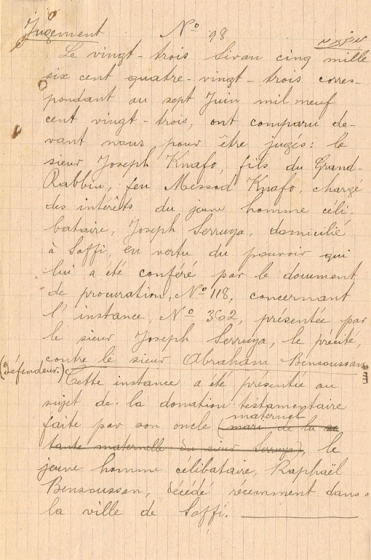 Jugement N° 18
Le vingt-trois Sivan cinq mille
six cent quatre-vingt-trois corres-
pondant au sept Juin mil neuf
cent vingt-trois, ont comparu de-
vant nous pour être jugés: le
sieur Joseph Knafo, fils du Grand-
Rabbin, feu Messod Knafo, chargé
des intérêts du jeune homme céli-
bataire, Joseph Serruya, domicilié
à Saffi, en vertu du pouvoir qui
lui a été conféré par le document
de procuration, N° 118, concernant
l'instance, N° 302, présentée par
le sieur Joseph Serruya, le précité,
contre le sieur Abraham Bensoussan
(défendeur.) Cette instance a été présentée au
sujet de la donation testamentaire
maternel,
faite par son oncle (mari de la
tante maternelle du sieur Serruya), le
jeune homme célibataire, Raphaël
Bensoussan, décédé récemment dans
la ville de Saffi.